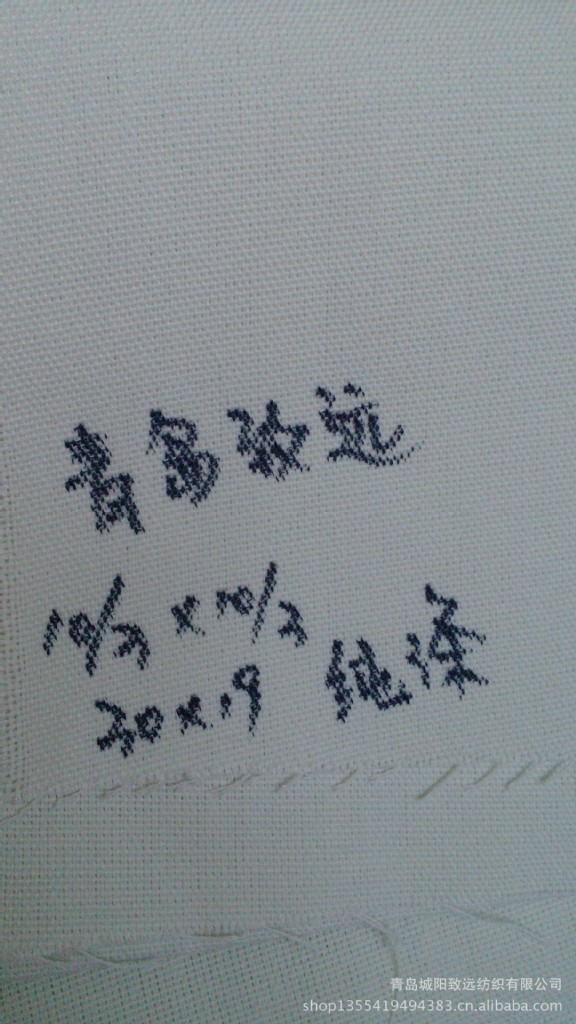 青岛致远
10/2 x 10/2
30 x 19 纯涤
青岛城阳致远纺织有限公司
shop1355419494383.cn.alibaba.com